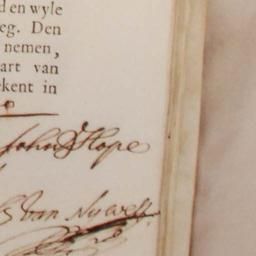 d en wyle
eg. Den
nemen,
art van
ekent in
John D Hope
S Van Nuwelt